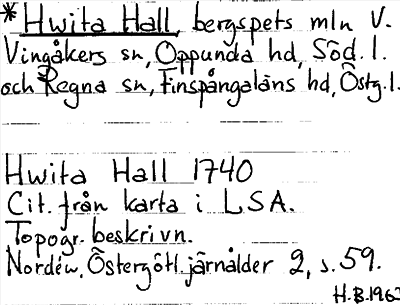 * Hwita Hall, bergspets mln V.
Vingåkers sn, Oppunda hd, Söd.l.
och Regna sn, Finspångaläns hd, Östg.l.
Hwita Hall 1740
Cit. från karta i LSA.
Topogr. beskrivn.
Nordén, Östergötl. järnålder 2, s. 59.
H.B. 1963